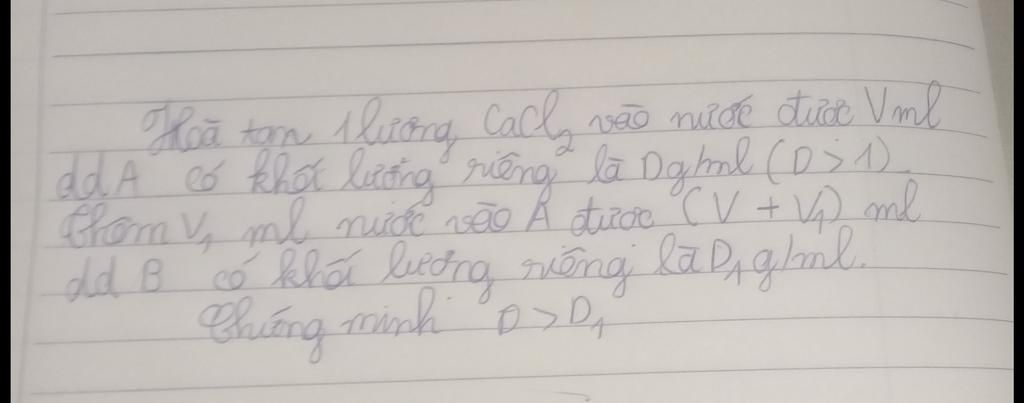 Hoà tan 1 lượng CaCl₂ vào nước được V ml
dd A có khối lượng riêng là D g/ml (D > 1).
Thêm V₁ ml nước vào A được (V + V₁) ml
dd B có khối lượng riêng là D₁ g/ml.
Chứng minh D > D₁